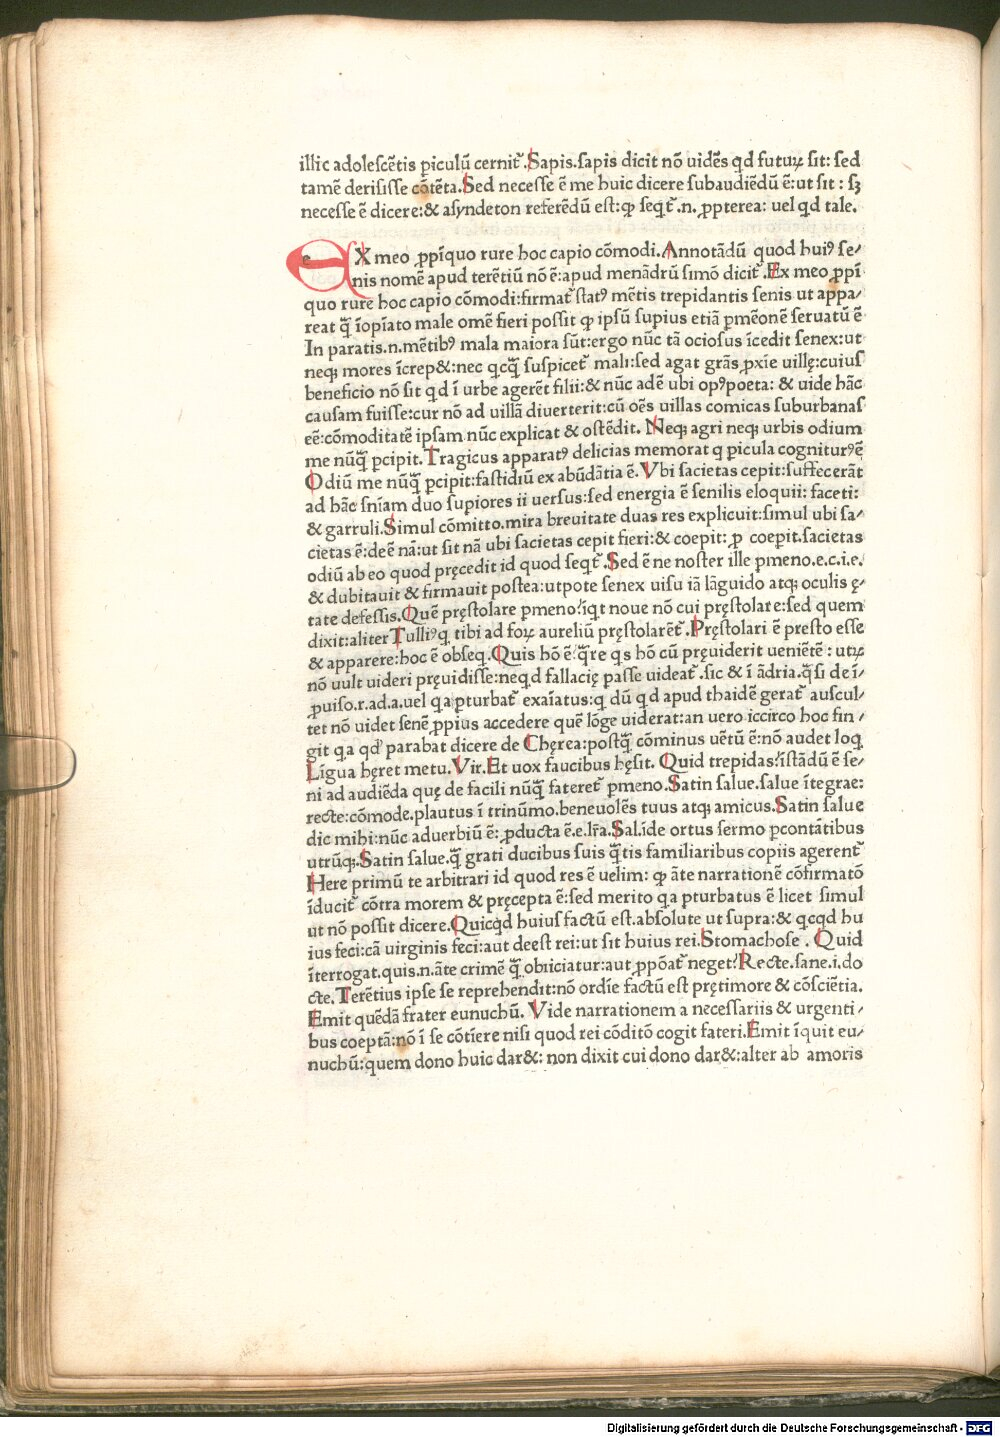 illic adolescẽtis ꝑiculũ cernit᷑. Sapis. sapis dicit nõ uidẽs qd futuꝝ sit: sed
tamẽ derisisse cõtẽta. Sed necesse ẽ me huic dicere subaudiẽdũ ẽ: ut sit : sꝫ
necesse ẽ dicere: & asyndeton referẽdũ est: ꝙ seqt᷑ .n. ꝓpterea: uel qd tale.
eX meo ꝓpĩquo rure hoc capio cõmodi. Annotãdũ quod huiꝰ se/
nis nomẽ apud terẽtiũ nõ ẽ: apud menãdrũ simõ dicit᷑. Ex meo ꝓpĩ
quo rure hoc capio cõmodi: firmat᷑ statꝰ mẽtis trepidantis senis ut appa/
reat q̃ ĩopĩato male omẽ fieri possit ꝙ ipsũ supius etiã ꝑmẽonẽ seruatũ ẽ
In paratis .n. mẽtibꝰ mala maiora sũt: ergo nũc tã ociosus ĩcedit senex: ut
neqꝫ mores ĩcrep&: nec qcq̃ suspicet᷑ mali: sed agat grãs ꝓxĩe uillę: cuius
beneficio nõ sit qd ĩ urbe agerẽt filii: & nũc adẽ ubi opꝰ poeta: & uide hãc
causam fuisse: cur nõ ad uillã diuerterit: cũ oẽs uillas comicas suburbanas
eẽ: cõmoditatẽ ipsam nũc explicat & ostẽdit. Neqꝫ agri neqꝫ urbis odium
me nũq̃ ꝑcipit. Tragicus apparatꝰ delicias memorat q ꝑicula cogniturꝰ ẽ
Odiũ me nũq̃ ꝑcipit: fastidiũ ex abũdãtia ẽ. Vbi sacietas cepit: suffecerãt
ad hãc sñiam duo supiores ii uersus: sed energia ẽ senilis eloquii: faceti:
& garruli. Simul cõmitto. mira breuitate duas res explicuit: simul ubi sa/
cietas ẽ: deẽ nã: ut sit nã ubi sacietas cepit fieri: & coepit: ꝓ coepit. sacietas
odiũ ab eo quod pręcedit id quod seqt᷑. Sed ẽ ne noster ille ꝑmeno. e.c.i.e.
& dubitauit & firmauit postea: utpote senex uisu iã lãguido atqꝫ oculis ę/
tate defessis. Quẽ pręstolare ꝑmeno? iqt noue nõ cui pręstolare: sed quem
dixit: aliter Tulliꝰ q tibi ad foꝝ aureliũ pręstolarẽt᷑. Pręstolari ẽ presto esse
& apparere: hoc ẽ obseq. Quis hõ ẽ? q̃re qs hõ cũ pręuiderit ueniẽtẽ : utꝝ
nõ uult uideri pręuidisse: neqd fallacię passe uideat᷑. sic & ĩ ãdria. q̃si de ĩ/
ꝓuiso. r. ad. a. uel qa ꝑturbat᷑ exaĩatus: q dũ qd apud thaidẽ gerat᷑ auscul/
tet nõ uidet senẽ ꝓpius accedere quẽ lõge uiderat: an uero iccirco hoc fin/
git qa qd parabat dicere de Chęrea: postq̃ cõminus uẽtũ ẽ: nõ audet loq
Lĩgua hęret metu. Vir. Et uox faucibus hęsit. Quid trepidas? istãdũ ẽ se/
ni ad audiẽda quę de facili nũq̃ fateret᷑ ꝑmeno. Satin salue. salue ĩtegrae:
recte: cõmode. plautus ĩ trinũmo. beneuolẽs tuus atqꝫ amicus. Satin salue
dic mihi: nũc aduerbiũ ẽ: ꝓducta ẽ. e. lr̃a. Sal. ide ortus sermo ꝑcontãtibus
utrũqꝫ. Satin salue. q̃ grati ducibus suis q̃tis familiaribus copiis agerent᷑
Here primũ te arbitrari id quod res ẽ uelim: ꝙ ãte narrationẽ cõfirmatõ
ĩducit᷑ cõtra morem & pręcepta ẽ: sed merito qa ꝑturbatus ẽ licet simul
ut nõ possit dicere. Quicqd huius factũ est. absolute ut supra: & qcqd hu
ius feci: cã uirginis feci: aut deest rei: ut sit huius rei. Stomachose . Quid
ĩterrogat. quis .n. ãte crimẽ q̃ obiiciatur: aut ꝓpõat᷑ neget? Recte. sane. i. do
cte. Terẽtius ipse se reprehendit: nõ ordĩe factũ est pręe timore & cõsciẽtia.
Emit quẽdã frater eunuchũ. Vide narrationem a necessariis & urgenti/
bus coeptã: nõ ĩ se cõtĩere nisi quod rei cõditõ cogit fateri. Emit ĩquit eu/
nuchũ: quem dono huic dar&: non dixit cui dono dar&: alter ab amoris
Digitalisierung gefördert durch die Deutsche Forschungsgemeinschaft - DFG